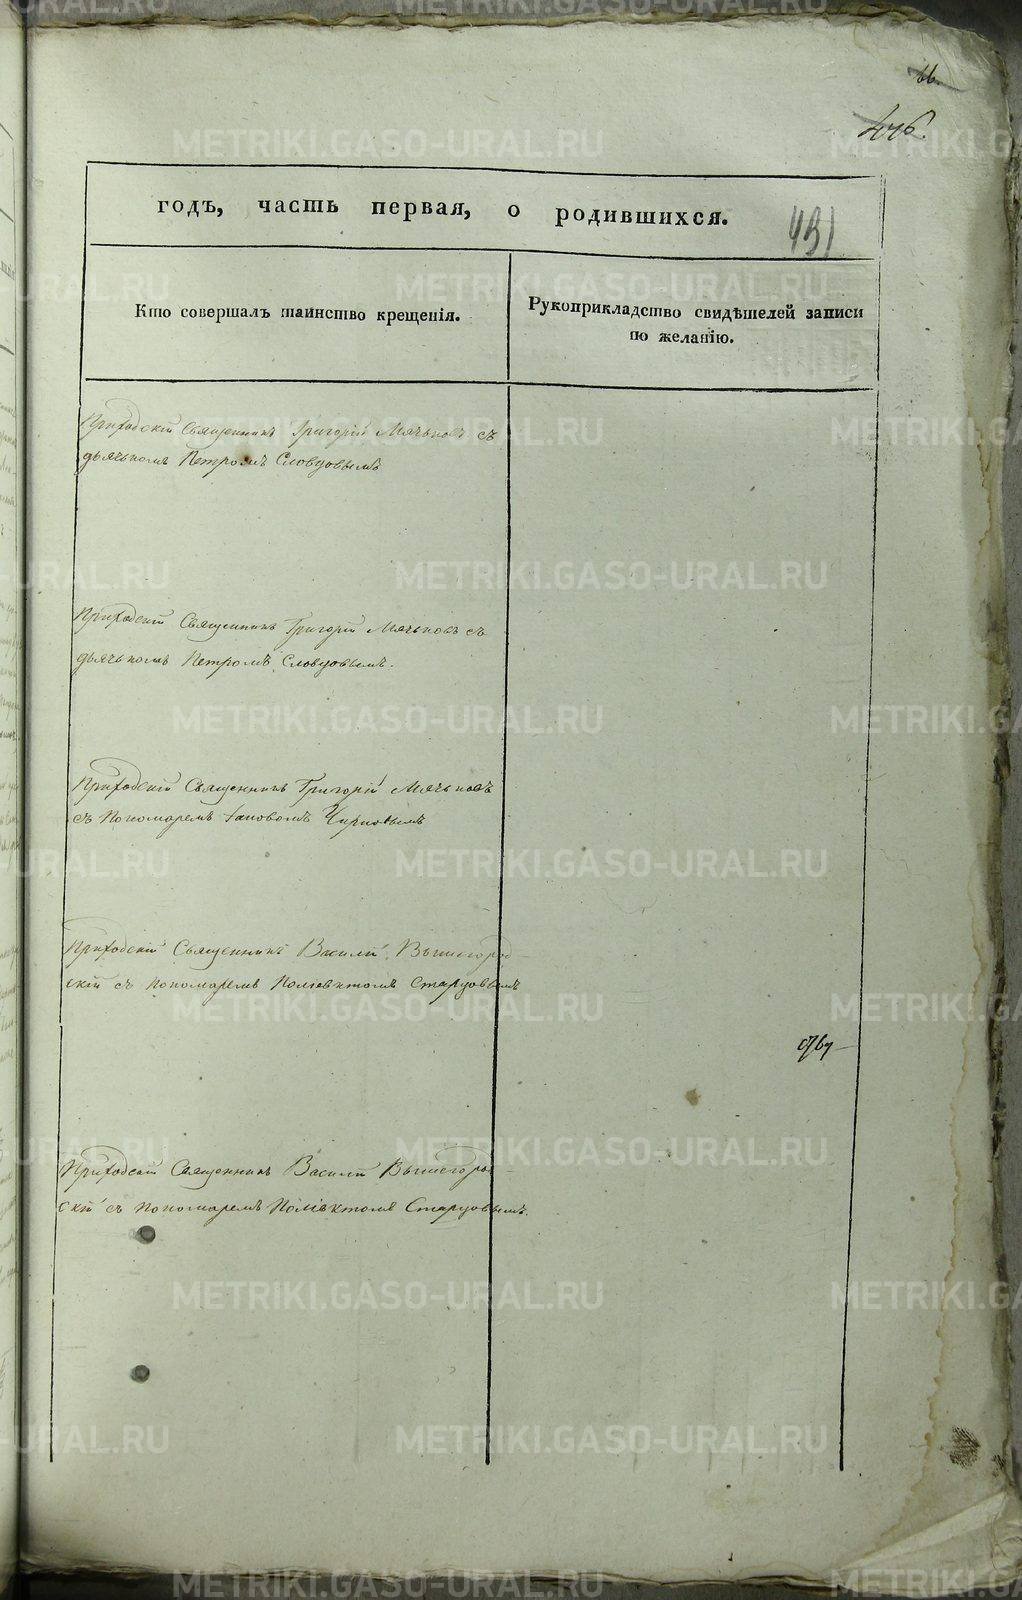 66.
446.
годъ, часть первая, о родившихся.
431
Кто совершалъ таинство крещенія.
Рукоприкладство свидѣтелей записи
по желанію.
Приходскій Священникъ Григорій Мячьковъ съ
дьячькомъ Петромъ Словцовымъ
Приходскій Священникъ Григорій Мячьковъ съ
дьячькомъ Петромъ Словцовымъ.
Приходскій Священникъ Григорій Мячьковъ
съ Пономаремъ Іаковомъ
Приходскій Священникъ Василій Вышегород-
скій съ пономаремъ Поліевктомъ Старцовымъ
Приходскій Священникъ Василій Вышегород-
скій съ пономаремъ Поліевктомъ Старцовымъ.
METRIKI.GASO-URAL.RU